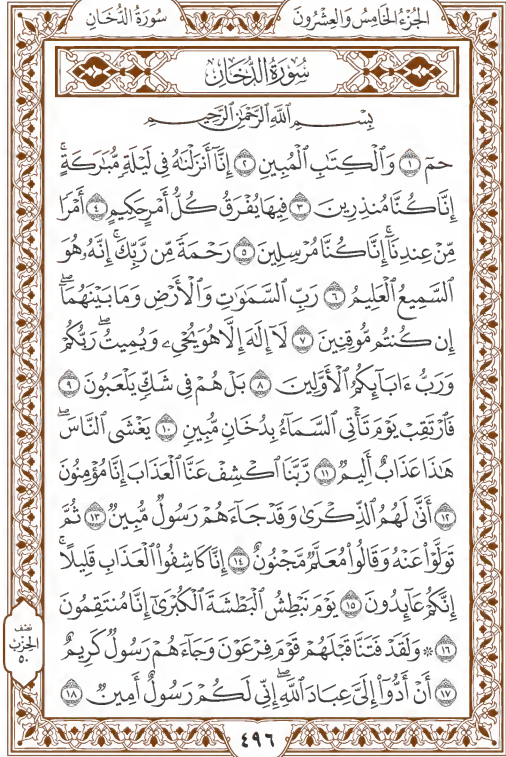 الجُزْءُ الخَامِسُ وَالعِشْرُونَ
سُورَةُ الدُّخَانِ
سُورَةُ الدُّخَانِ
بِسْمِ ٱللَّهِ ٱلرَّحْمَٰنِ ٱلرَّحِيمِ
حمٓ ١ وَٱلْكِتَٰبِ ٱلْمُبِينِ ٢ إِنَّآ أَنزَلْنَٰهُ فِى لَيْلَةٍ مُّبَٰرَكَةٍۚ
إِنَّا كُنَّا مُنذِرِينَ ٣ فِيهَا يُفْرَقُ كُلُّ أَمْرٍ حَكِيمٍ ٤ أَمْرًا
مِّنْ عِندِنَآۚ إِنَّا كُنَّا مُرْسِلِينَ ٥ رَحْمَةً مِّن رَّبِّكَۚ إِنَّهُۥ هُوَ
ٱلسَّمِيعُ ٱلْعَلِيمُ ٦ رَبِّ ٱلسَّمَٰوَٰتِ وَٱلْأَرْضِ وَمَا بَيْنَهُمَآۖ
إِن كُنتُم مُّوقِنِينَ ٧ لَآ إِلَٰهَ إِلَّا هُوَ يُحْىِۦ وَيُمِيتُۖ رَبُّكُمْ
وَرَبُّ ءَابَآئِكُمُ ٱلْأَوَّلِينَ ٨ بَلْ هُمْ فِى شَكٍّ يَلْعَبُونَ ٩
فَٱرْتَقِبْ يَوْمَ تَأْتِى ٱلسَّمَآءُ بِدُخَانٍ مُّبِينٍ ١٠ يَغْشَى ٱلنَّاسَۖ
هَٰذَا عَذَابٌ أَلِيمٌ ١١ رَّبَّنَا ٱكْشِفْ عَنَّا ٱلْعَذَابَ إِنَّا مُؤْمِنُونَ
١٢ أَنَّىٰ لَهُمُ ٱلذِّكْرَىٰ وَقَدْ جَآءَهُمْ رَسُولٌ مُّبِينٌ ١٣ ثُمَّ
تَوَلَّوْا۟ عَنْهُ وَقَالُوا۟ مُعَلَّمٌ مَّجْنُونٌ ١٤ إِنَّا كَاشِفُوا۟ ٱلْعَذَابِ قَلِيلًاۚ
إِنَّكُمْ عَآئِدُونَ ١٥ يَوْمَ نَبْطِشُ ٱلْبَطْشَةَ ٱلْكُبْرَىٰٓ إِنَّا مُنتَقِمُونَ
١٦ ۞ وَلَقَدْ فَتَنَّا قَبْلَهُمْ قَوْمَ فِرْعَوْنَ وَجَآءَهُمْ رَسُولٌ كَرِيمٌ
١٧ أَنْ أَدُّوٓا۟ إِلَىَّ عِبَادَ ٱللَّهِۖ إِنِّى لَكُمْ رَسُولٌ أَمِينٌ ١٨
نصف
الحزب
٥٠
٤٩٦